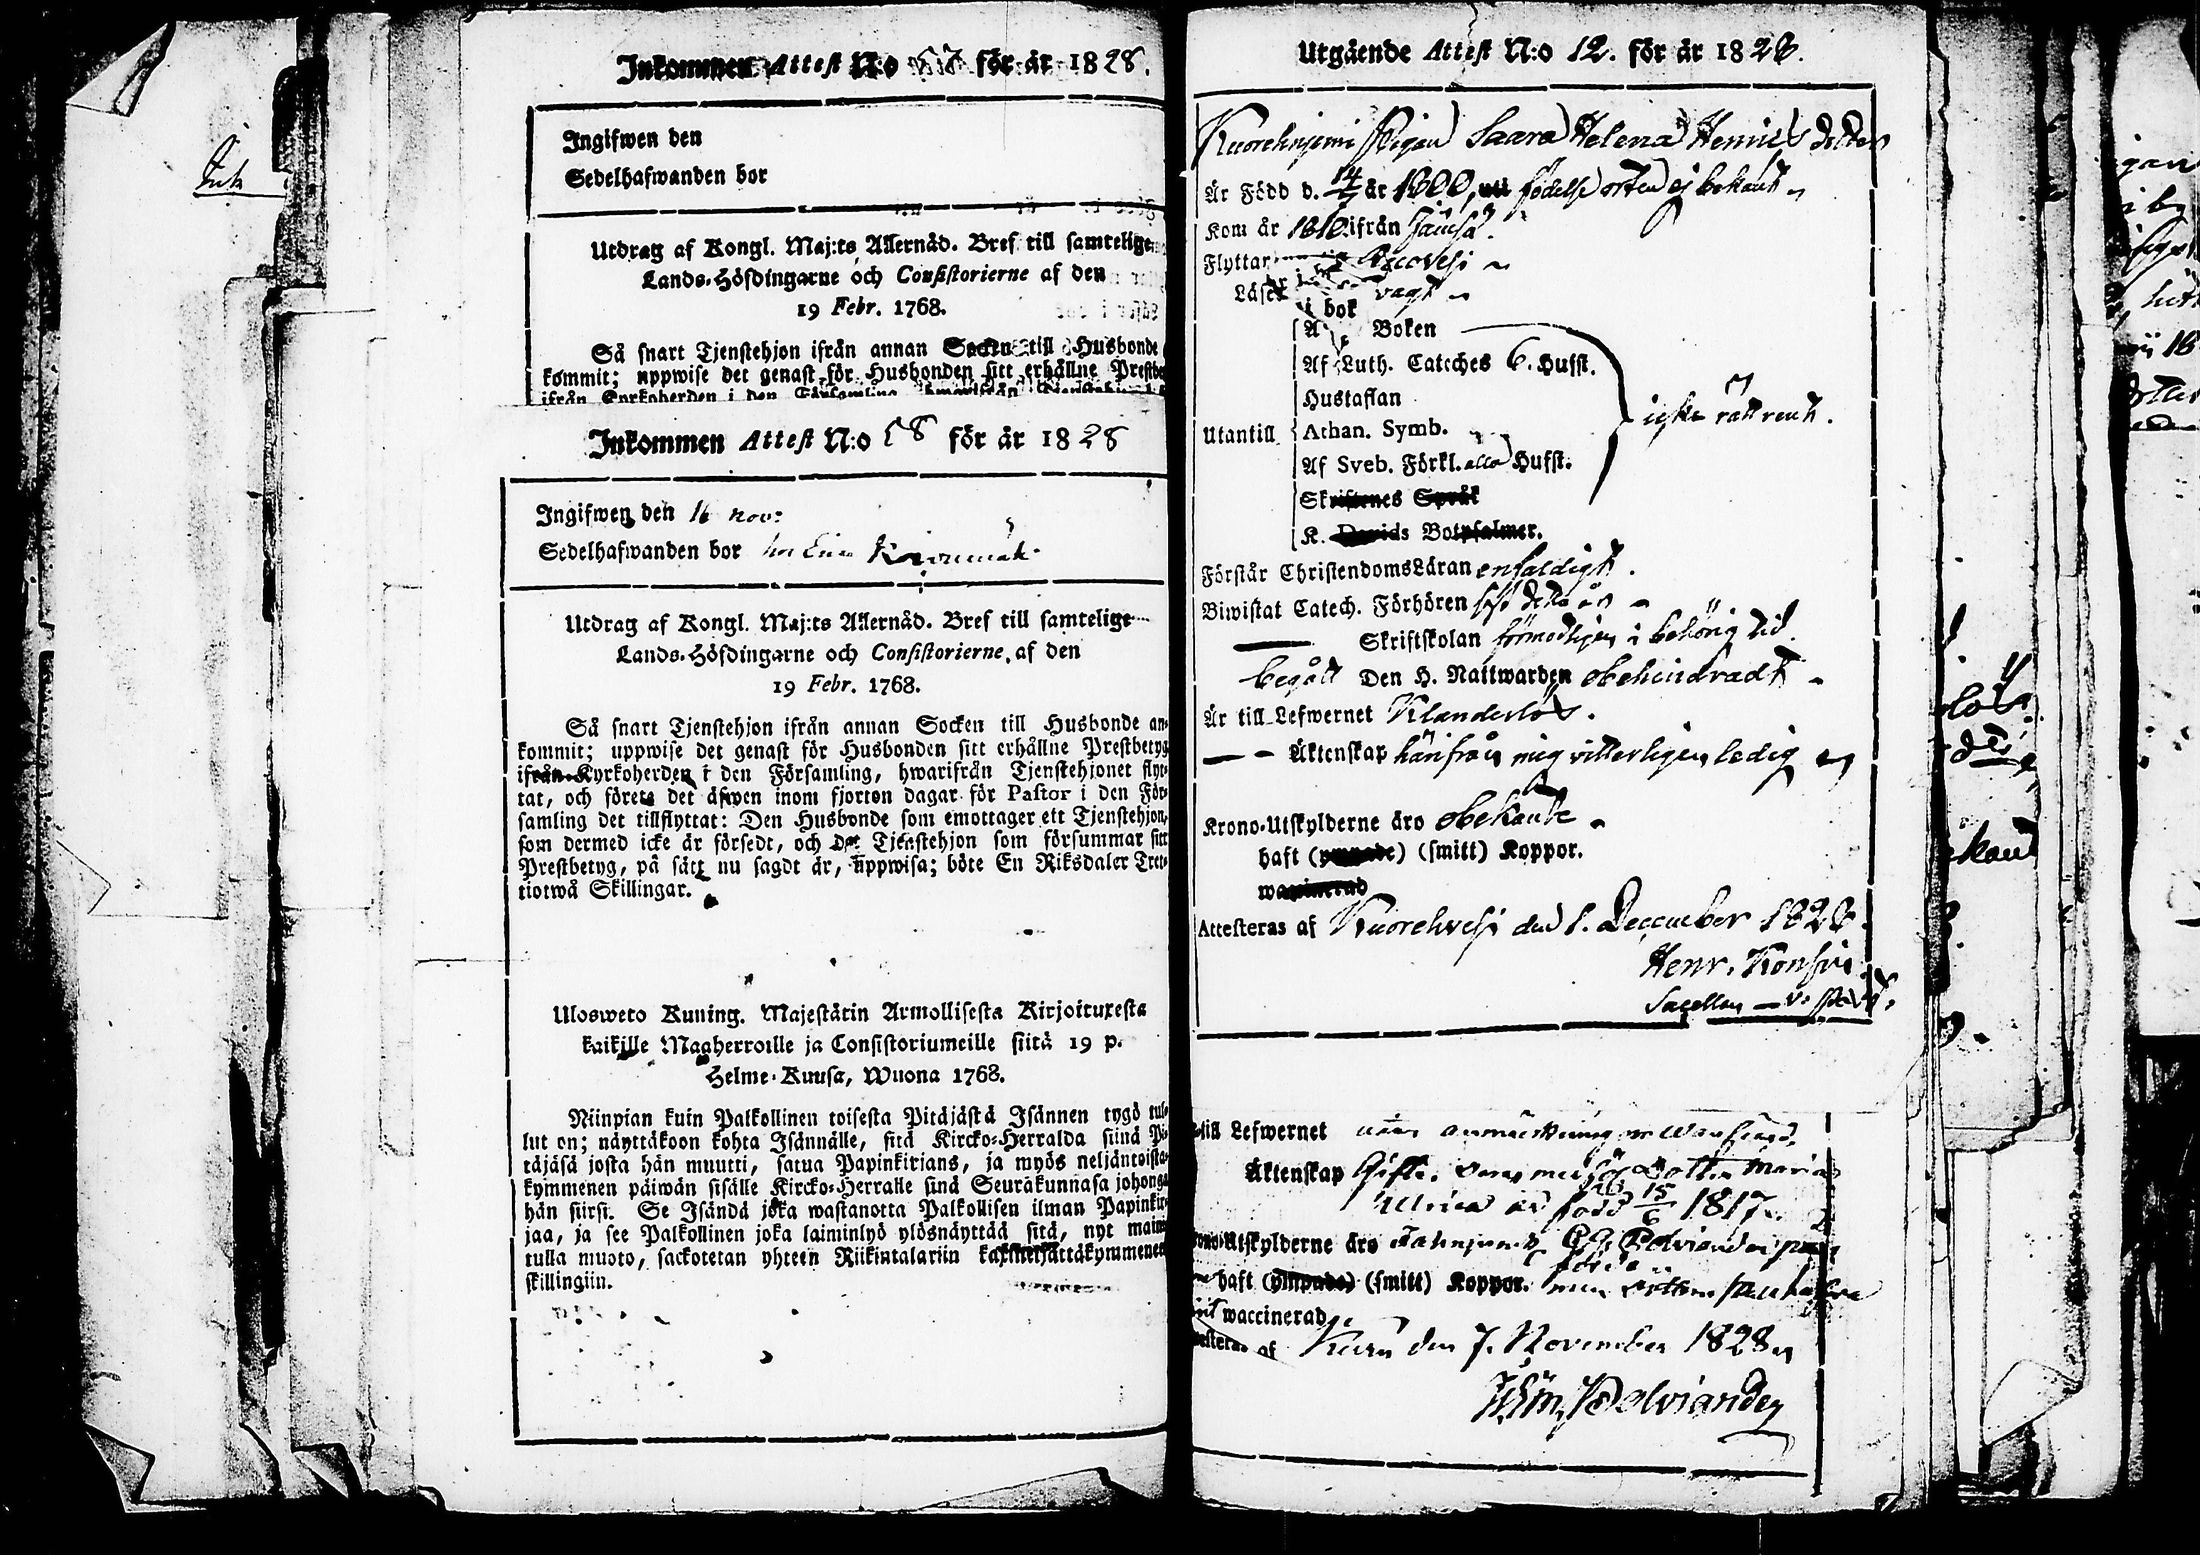 Inkommen Attest N:o 57 för år 1828.
Ingifwen den
Sedelhafwanden bor
Utdrag af Kongl. Maj:ts Allernåd. Bref till samtelige
Lands-Höfdingarne och Consistorierne af den
19 Febr. 1768.
Så snart Tjenstehjon ifrån annan Socken till Husbonde
kommit; uppwise det genast för Husbonden sitt erhållne Prestbe
ifrån Kyrkoherden i den Församling, hwarifrån Tjenstehjonet
Inkommen Attest N:o 58 för år 1828
Ingifwen den 16 nov:
Sedelhafwanden bor
Utdrag af Kongl. Maj:ts Allernåd. Bref till samtelige
Lands-Höfdingarne och Consistorierne, af den
19 Febr. 1768.
Så snart Tjenstehjon ifrån annan Socken till Husbonde an-
kommit; uppwise det genast för Husbonden sitt erhållne Prestbetyg
ifrån Kyrkoherden i den Församling, hwarifrån Tjenstehjonet flyt-
tat, och förete det äfwen inom fjorton dagar för Pastor i den För-
samling det tillflyttat: Den Husbonde som emottager ett Tjenstehjon,
som dermed icke är försedt, och det Tjenstehjon som försummar sitt
Prestbetyg, på sätt nu sagdt är, uppwisa; böte En Riksdaler Tret-
tiotwå Skillingar.
Ulosweto Kuning. Majestätin Armollisesta Kirjoituxesta
kaikille Maaherroille ja Consistoriumeille siitä 19 p.
Helme-Kuusa, Wuona 1768.
Niinpian kuin Palkollinen toisesta Pitäjästä Isännen tygö tul-
lut on; näyttäkoon kohta Isännälle, sitä Kircko-Herralda siinä Pi-
täjäsä josta hän muutti, satua Papinkirjans, ja myös neljäntoista-
kymmenen päiwän sisälle Kircko-Herralle siinä Seurakunnasa johonga
hän siirsi. Se Isändä joka wastanotta Palkollisen ilman Papinkir-
jaa, ja see Palkollinen joka laiminlyö ylösnäyttää sitä, nyt maini-
tulla muoto, sackotetan yhteen Riikintalariin kaxineljättäkymmenen
skillingiin.
Utgående Attest N:o 12. för år 1828.
Kuorehnjemi Pigan Saara Helena Henriksdotter
Är Född d. 14/7 år 1800, födelse orten ej bekant
Kom år 1816 ifrån Jämsä.
Flyttar Orivesi
Läser i bok svagt
A B Boken
Af Luth. Cateches 6. Hufst.
Hustaflan
Utantill Athan. Symb. icke rätt rent.
Af Sveb. Förkl. alla Hufst.
Skriftenes Språk
K. Davids Botpsalmer.
Förstår Christendoms Läran enfaldigt.
Biwistat Catech. Förhören sist detta år
Skriftskolan förmodligen i behörig tid.
begått Den H. Nattwarden obehindradt
Är till Lefwernet Klanderlös.
Äktenskap härifrån mig vitterligen ledig
Krono-Utskylderne äro obekante
haft (ympade) (smitt) Koppor.
waccinerad
Attesteras af Kuorehvesi den 1. December 1828.
Henr. Konsin
Sacellan
till Lefwernet utan anmärkning
Äktenskap Gifte. Dotter Maria
Ulrica är född 15/6 1817.
Utskylderne äro
haft (ympade) (smitt) Koppor. men
waccinerad
Attesteras af Kuru den 7. November 1828
Wm, Polviander